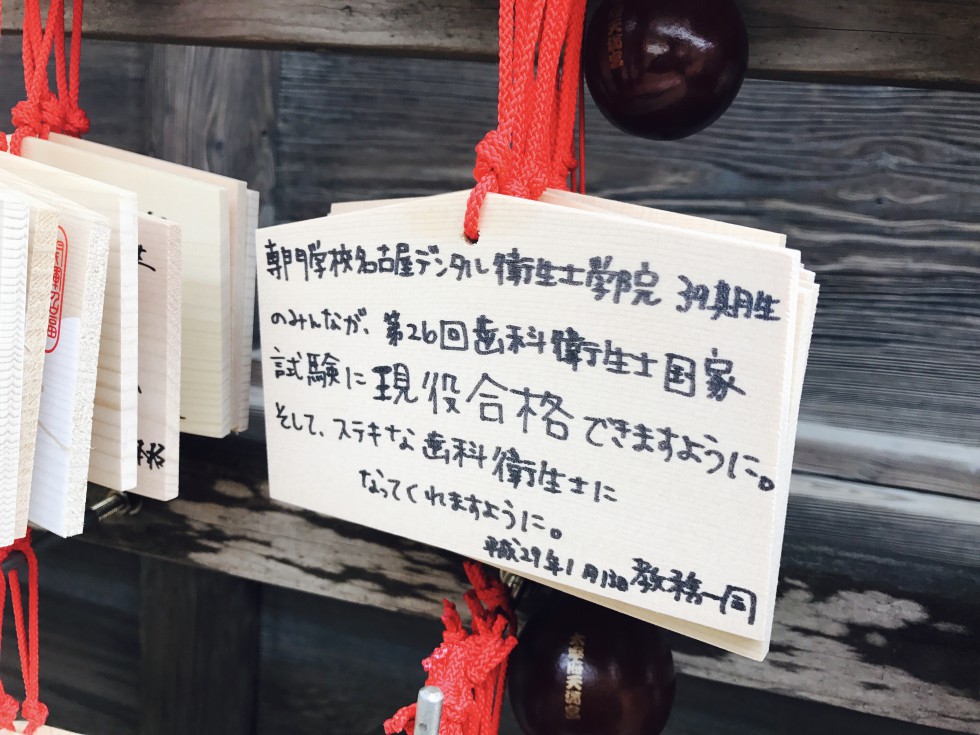 専門学校名古屋デンタル衛生士学院 39期生
のみんなが、第26回歯科衛生士国家
試験に現役合格できますように。
そして、ステキな歯科衛生士に
なってくれますように。
平成29年1月13日 教務一同